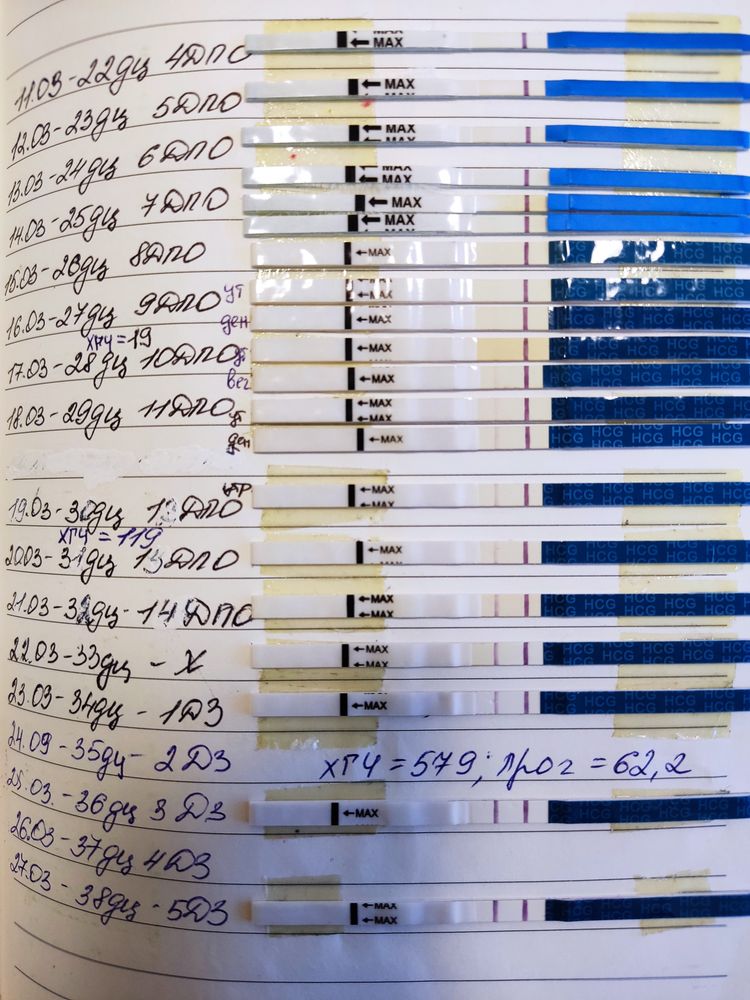 11.03-22дц 4ДПО
← MAX
12.03-23дц 5ДПО
← MAX
13.03-24дц 6ДПО
← MAX
← MAX
14.03-25дц 7ДПО
← MAX
← MAX
15.03-26дц 8ДПО
←MAX
HCG HCG HCG
16.03-27дц 9ДПО ут
←MAX
HCG HCG HCG
ден
←MAX
HCG HCG HCG
ХГЧ=19
17.03-28дц 10ДПО ут
←MAX
HCG HCG HCG
веч
←MAX
HCG HCG HCG
18.03-29дц 11ДПО ут
←MAX
←MAX
HCG HCG HCG
ден
←MAX
HCG HCG HCG
19.03-30дц 12ДПО утр
←MAX
←MAX
HCG HCG HCG
ХГЧ=119
20.03-31дц 13ДПО
←MAX
HCG HCG HCG
21.03-32дц-14ДПО
←MAX
←MAX
HCG HCG HCG
22.03-33дц-X
←MAX
←MAX
HCG HCG HCG
23.03-34дц-1ДЗ
←MAX
HCG HCG HCG
24.09-35дц-2ДЗ ХГЧ=579; прог=62,2
25.03.-36дц 3ДЗ
←MAX
26.03-37дц 4ДЗ
27.03-38дц-5ДЗ
←MAX
←MAX
HCG HCG HCG